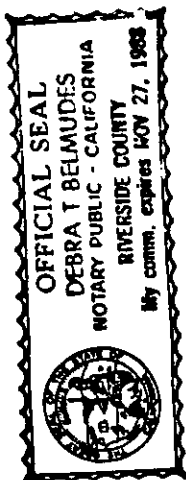 OFFICIAL SEAL
DEBRA T BELMUDES
NOTARY PUBLIC - CALIFORNIA
RIVERSIDE COUNTY
My comm. expires NOV 27, 1988